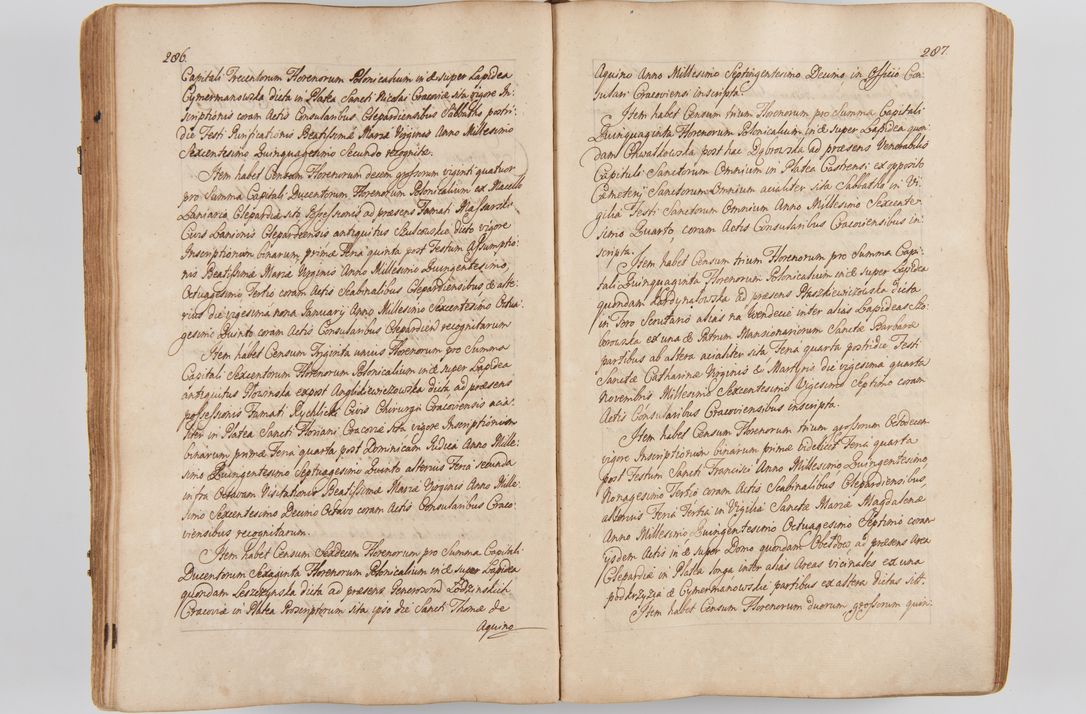 286.
Capitali Trecentorum Florenorum Polonicalium in & super Lapidea
Cymermanowska dicta in Platea Sancti Nicolai Cracoviæ sita vigore In-
scriptionis coram Actis Consularibus Clepardiensibus Sabbatho postri-
die Festi Purificationis Beatissimæ Mariæ Virginis Anno Millesimo
Sexcentesimo Quinquagesimo Secundo recognitæ.
Item habet Censum Florenorum decem grossorum viginti quatuor
pro Summa Capitali Ducentorum Florenorum Polonicalium ex Macello
Laniario Clepardiæ sito possessionis ad præsens Famati
Civis Lanionis Clepardiensis antiquitus dicto vigore
Inscriptionum binarum, primæ Feria quinta post Festum Assumptio-
nis Beatissimæ Mariæ Virginis Anno Millesimo Quingentesimo
Octuagesimo Tertio coram Actis Scabinalibus Clepardiensibus & alte-
rius die vigesima nona Januarij Anno Millesimo Sexcentesimo Octua-
gesimo Quinto coram Actis Consularibus Clepardien recognitarum
Item habet Censum Triginta unius Florenorum pro Summa
Capitali Sexcentorum Florenorum Polonicalium in & super Lapidea
antiquitus Słowinska expost dicta ad præsens
possessionis Famati Rychlicki Civis Chirurgi Cracoviensis acia-
liter in Platea Sancti Floriani Cracoviæ sita vigore Inscriptionum
binarum primæ Feria quarta post Dominicam Judica Anno Mille-
simo Quingentesimo Septuagesimo Quinto alterius Feria secunda
infra Octavam Visitationis Beatissimæ Mariæ Virginis Anno Mille-
simo Sexcentesimo Decimo Octavo coram Actis Consularibus Craco-
viensibus recognitarum.
Item habet Censum Sexdecem Florenorum pro Summa Capitali
Ducentorum Sexaginta Florenorum Polonicalium in & super Lapidea
quondam Leszczynska dicta ad præsens Generosorum
Cracoviæ in Platea sita ipso die Sancti Thomæ de
Aquino
287
Aquino Anno Millesimo Septingentesimo Decimo in Officio Con-
sulari Cracoviensi inscripta.
Item habet Censum trium Florenorum pro Summa Capitali
Quinquaginta Florenorum Polonicalium in & super Lapidea quon-
dam Chwalkowska post hac Dąbrowska ad præsens Venerabilis
Capituli Sanctorum Omnium in Platea Castrensi ex opposito
Cæmeterij Sanctorum Omnium acialiter sita Sabbatho in Vi-
gilia Festi Sanctorum Omnium Anno Millesimo Sexcente-
simo Quarto, coram Actis Consularibus Cracoviensibus in-
scripta.
Item habet Censum trium Florenorum pro Summa Capi-
tali Quinquaginta Florenorum Polonicalium in & super Lapidea
quondam Kordynalowska ad præsens Ptaszkiewiczowska dicta
in Foro Scrutario alias na Wendecie inter alias Lapideas
ex una & Patrum Mansionariorum Sanctæ Barbaræ
partibus ab altera acialiter sita Feria quarta postridie Festi
Sanctæ Catharinæ Virginis & Martyris die vigesima quarta
Novembris Millesimo Sexcentesimo Vigesimo Septimo coram
Actis Consularibus Cracoviensibus inscripta.
Item habet Censum Florenorum trium, grossorum Octodecem
vigore Inscriptionum binarum primæ videlicet Feria quarta
post Festum Sancti Francisci Anno Millesimo Quingentesimo
Nonagesimo Tertio coram Actis Scabinalibus Clepardiensibus,
alterius Feria Tertia in Vigilia Sanctæ Mariæ Magdalenæ
Anno Millesimo Quingentesimo Octuagesimo Septimo coram
ijsdem Actis in & super Domo quondam ad præsens Area
Clepardiæ in Platea longa inter alias Areas vicinales ex una
& Cymermanowskie partibus ex altera dictas sit.
Item habet Censum Florenorum duorum, grossorum quin-